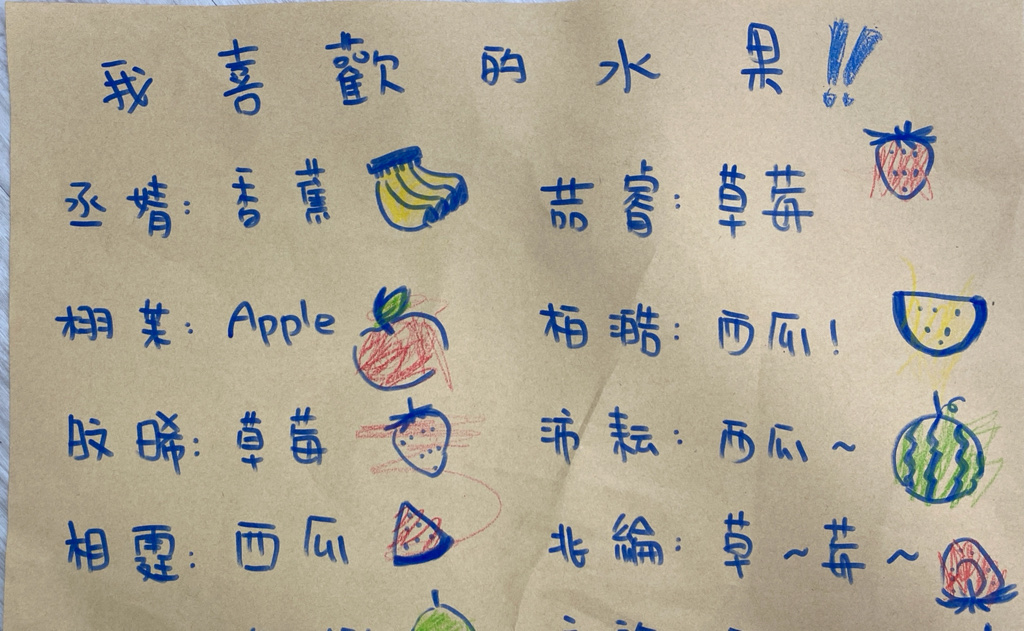 我喜歡的水果!!
丞婧：香蕉
喆睿：草莓
栩茉：Apple
柏澔：西瓜！
晞：草莓
沛耘：西瓜～
相霆：西瓜
北綸：草～莓～